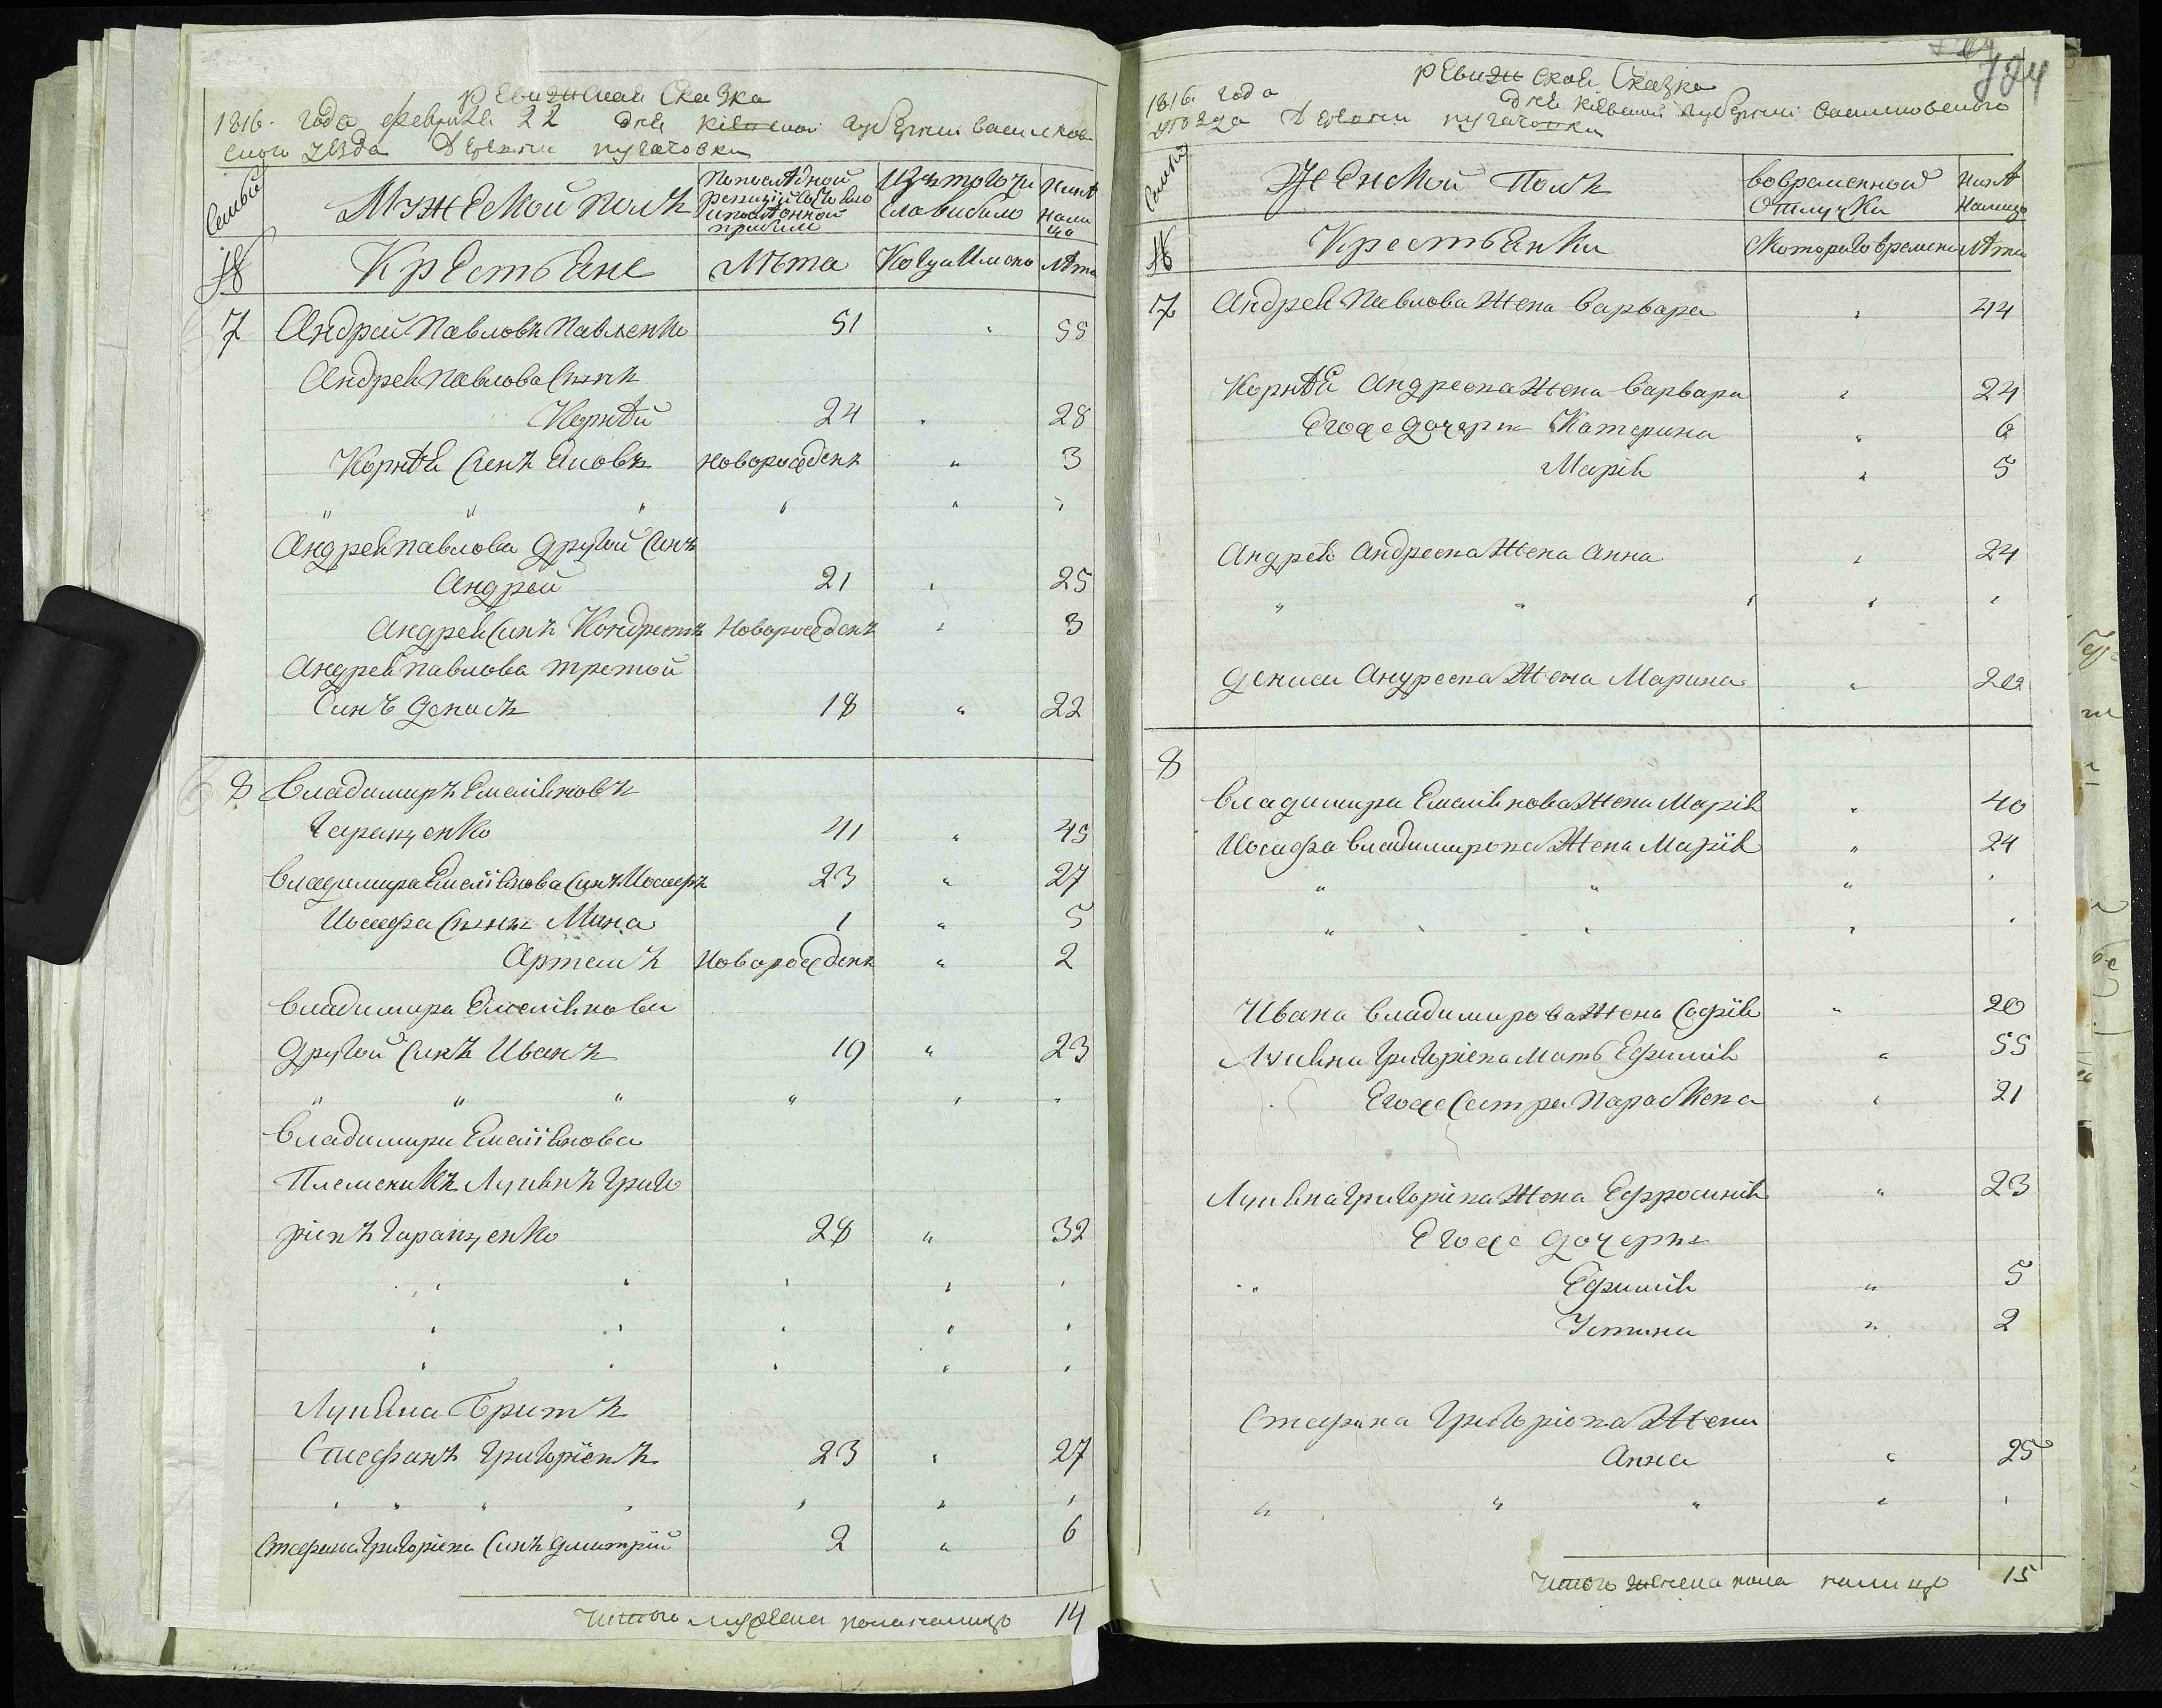 Ревизская Сказка
1816. года февраля 22 дня Кіевской губерніи Васильков
ского уезда Деревни Пугачовки
Семьи
Мужеской полъ
По последной ревизіи состояло и после оной прибыли
Изъ того числа выбыло
Ныне на лицо
№
Крестьяне
Лѣта
Когда Именно
Лѣта
7 Андрей Павловъ Павленко 51 55
Андрея Павлова Сынъ
Корнѣй 24 28
Корнѣя Синъ Яковъ Новорожденъ 3
Андрея Павлова Другой Синъ
Андрей 21 25
Андрея Синъ Кондратъ Новорожденъ 3
Андрея Павлова третой
Синъ Денисъ 18 22
8 Владимиръ Емелияновъ
Таранченко 41 45
Владимира Емелиянова Синъ Иосифъ 23 27
Иосифа Сынъ Мина 1 5
Артемъ Новорожденъ 2
Владимира Емелиянова
Другой Синъ Иванъ 19 23
Владимира Емелиянова
Племеникъ Лукиянъ Григо
ріевъ Таранченко 28 32
Лукияна Братъ
Стефанъ Григоріевъ 23 27
Стефана Григоріева Синъ Дмитрій 2 6
Итого мужеска пола налицо 14
724
Ревизская Сказка
1816 года дня Кіевской губерніи Васильковского
уезда Деревни Пугачовки
Семьи
Женской Полъ
Во временной Отлучки
Ныне Налицо
№
Крестьянки
С которого времени
Лѣта
7 Андрея Павлова Жена Варвара 44
Корнѣя Андреева Жена Варвара 24
Его же дочери Катерина 6
Марія 5
Андрея Андреева Жена Анна 24
Дениса Андреева Жена Марина 20
8
Владимира Емелиянова Жена Марія 40
Иосифа Владимирова Жена Марія 24
Ивана Владимирова Жена Софія 20
Лукияна Григоріева Мать Ефимія 55
Его же Сестра Параскева 21
Лукияна Григоріева Жена Ефросинія 23
Его же дочери
Ефимія 5
Устина 2
Стефана Григоріева Жена
Анна 25
Итого женска пола налицо 15